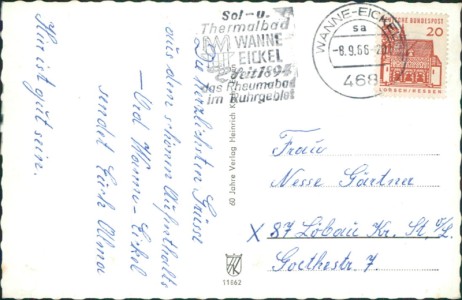 Hier ist gut sein.
Die herzlichsten Grüsse
aus dem schönen Aufenthalts
– Und Wanne-Eickel
sendet Euch Alma
Sol- u.
Thermalbad
WANNE
EICKEL
Seit 1894
das Rheumabad
im Ruhrgebiet
WANNE-EICKEL
sa
-8.9.66-20
468
DEUTSCHE BUNDESPOST
20
LORSCH/HESSEN
60 Jahre Verlag Heinrich
11862
Frau
Nesse Gärtner
X 87 Löbau Kr. St. i/L.
Goethestr. 7